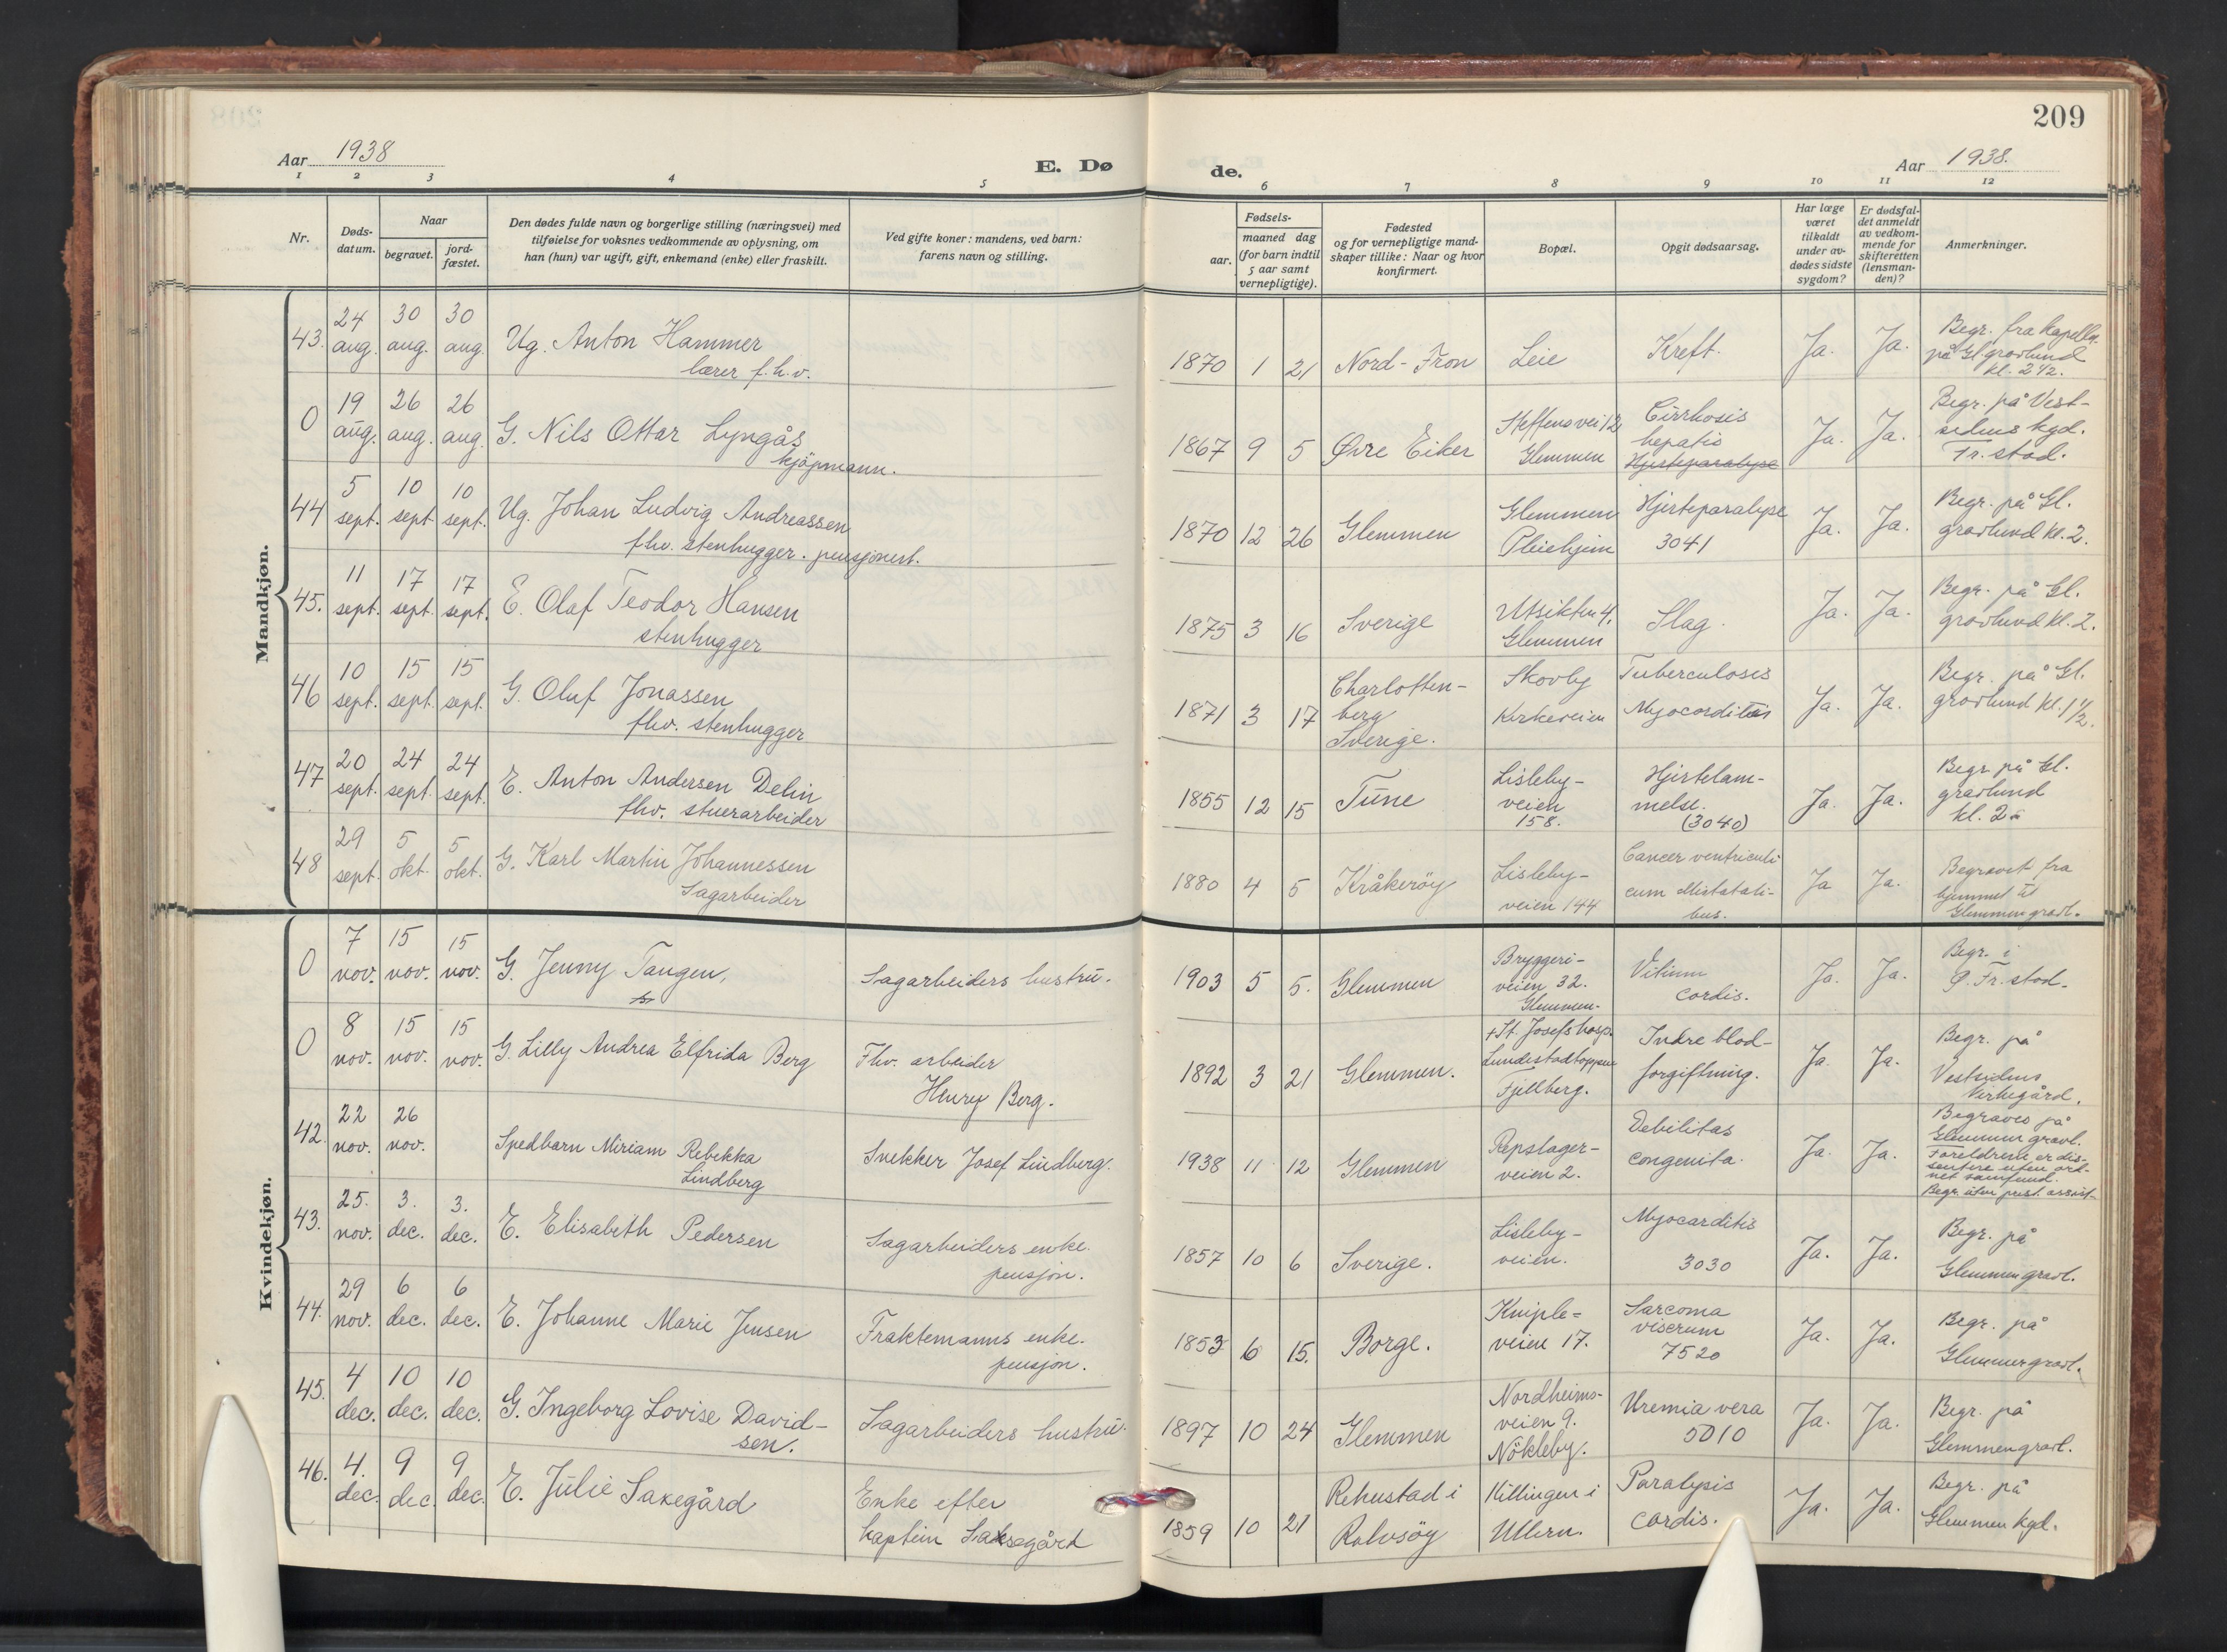 209
Aar 1938
E. Dø
de.
Aar 1938.
1 2 3 4 5 6 7 8 9 10 11 12
Nr.
Døds-
datum.
Naar
begravet.
jord-
fæstet.
Den dødes fulde navn og borgerlige stilling (næringsvei) med
tilføielse for voksnes vedkommende av oplysning, om
han (hun) var ugift, gift, enkemand (enke) eller fraskilt.
Ved gifte koner: mandens, ved barn:
farens navn og stilling.
Fødsels-
aar.
maaned dag
(for barn indtil
5 aar samt
vernepligtige).
Fødested
og for vernepligtige mand-
skaper tillike: Naar og hvor
konfirmert.
Bopæl.
Opgit dødsaarsag.
Har læge
været
tilkaldt
under av-
dødes sidste
sygdom?
Er dødsfal-
det anmeldt
av vedkom-
mende for
skifteretten
(lensman-
den)?
Anmerkninger.
Mandkjøn.
43.
24 aug.
30 aug.
30 aug
Ug. Anton Hammer
lærer f.h.v.
1870 1 21
Nord-Fron
Leie
Kreft.
Ja.
Ja.
Begr. fra kapellet
på Gl. gravlund
kl. 2 1/2.
0
19 aug.
26 aug.
26 aug.
G. Nils Ottar Lyngås
kjøpmann.
1867 9 5
Øvre Eiker
Steffensvei 12
Glemmen
Cirrhosis
hepatis
Hjerteparalyse
Ja.
Ja.
Begr. på Vest-
sidens kgd.
Fr.stad.
44
5 sept.
10 sept
10 sept.
Ug. Johan Ludvig Andreassen
fhv. stenhugger. pensjonert.
1870 12 26
Glemmen
Glemmen
Pleiehjem
Hjerteparalyse
3041
Ja.
Ja.
Begr. på Gl.
gravlund kl. 2.
45.
11 sept.
17 sept.
17 sept.
E. Olaf Teodor Hansen
stenhugger
1875 3 16
Sverige
Utsikten 4.
Glemmen
Slag.
Ja.
Ja.
Begr. på Gl.
gravlund kl. 2.
46
10 sept.
15 sept.
15 sept.
G. Oluf Jonassen
fhv. stenhugger
1871 3 17
Charlotten-
berg
Sverige.
Skovly
Kirkeveien
Tuberculosis
Myocarditis
Ja.
Ja.
Begr. på Gl.
gravlund kl. 1 1/2.
47
20 sept.
24 sept.
24 sept.
E. Anton Andersen Delin
fhv. stuerarbeider
1855 12 15
Tune
Lisleby-
veien
158.
Hjertelam-
melse.
(3040)
Ja.
Ja.
Begr. på Gl.
gravlund
kl. 2
48
29 sept.
5 okt.
5 okt.
G. Karl Martin Johannessen
Sagarbeider
1880 4 5
Kråkerøy
Lisleby-
veien 144
Cancer ventriculi
cum Mistatati-
bus.
Ja
Ja.
Begravet fra
hjemmet til
Glemmen gravl.
Kvindekjøn.
0
7 nov.
15 nov.
15 nov.
G. Jenny Tangen,
Sagarbeiders hustru.
1903 5 5.
Glemmen
Bryggeri-
veien 32.
Glemmen.
Vitium
cordis.
Ja.
Ja.
Begr. i
G. Fr.stad.
0
8 nov.
15 nov.
15 nov.
G. Lilly Andrea Elfrida Berg
Fhv. arbeider
Henry Berg.
1892 3 21
Glemmen.
+St. Josefs hosp.
Lundestadtoppen
Fjellberg.
Indre blod-
forgiftning.
Ja.
Ja.
Begr. på
Vestsidens
kirkegård.
42.
22 nov.
26 nov.
Spedbarn Miriam Rebekka
Lindberg
Snekker Josef Lindberg.
1938 11 12
Glemmen
Repslager-
veien 2.
Debilitas
congenita.
Ja.
Ja.
Begraves på
Glemmen gravl.
Foreldrene er dis-
sentere uten ord-
net samfund.
Begr. uten prest. assist.
43.
25. nov.
3. dec.
3. dec.
E. Elisabeth Pedersen
Sagarbeiders enke.
pensjon.
1857 10 6
Sverige.
Lisleby-
veien.
Myocarditis
3030
Ja.
Ja.
Begr. på
Glemmen gravl.
44.
29 nov.
6 dec.
6 dec.
E. Johanne Marie Jensen
Fraktemanns enke.
pensjon.
1853 6 15.
Borge.
Kniple-
veien 17.
Sarcoma
viscrum
7520
Ja.
Ja.
Begr. på
Glemmen gravl.
45.
4 dec.
10 dec.
10 dec.
G. Ingeborg Lovise David-
sen.
Sagarbeiders hustru.
1897 10 24
Glemmen
Nordheims-
veien 9.
Nøkleby.
Uremia vera
5010
Ja.
Ja.
Begr. på
Glemmen gravl.
46.
4. dec.
9 dec.
9 dec.
E. Julie Saxegård
Enke efter
kaptein Saksegård
1859 10 21
Rehustad i
Rolvsøy
Killingen i
Ullern.
Paralysis
cordis.
Ja.
Ja.
Begr. på
Glemmen kgd.